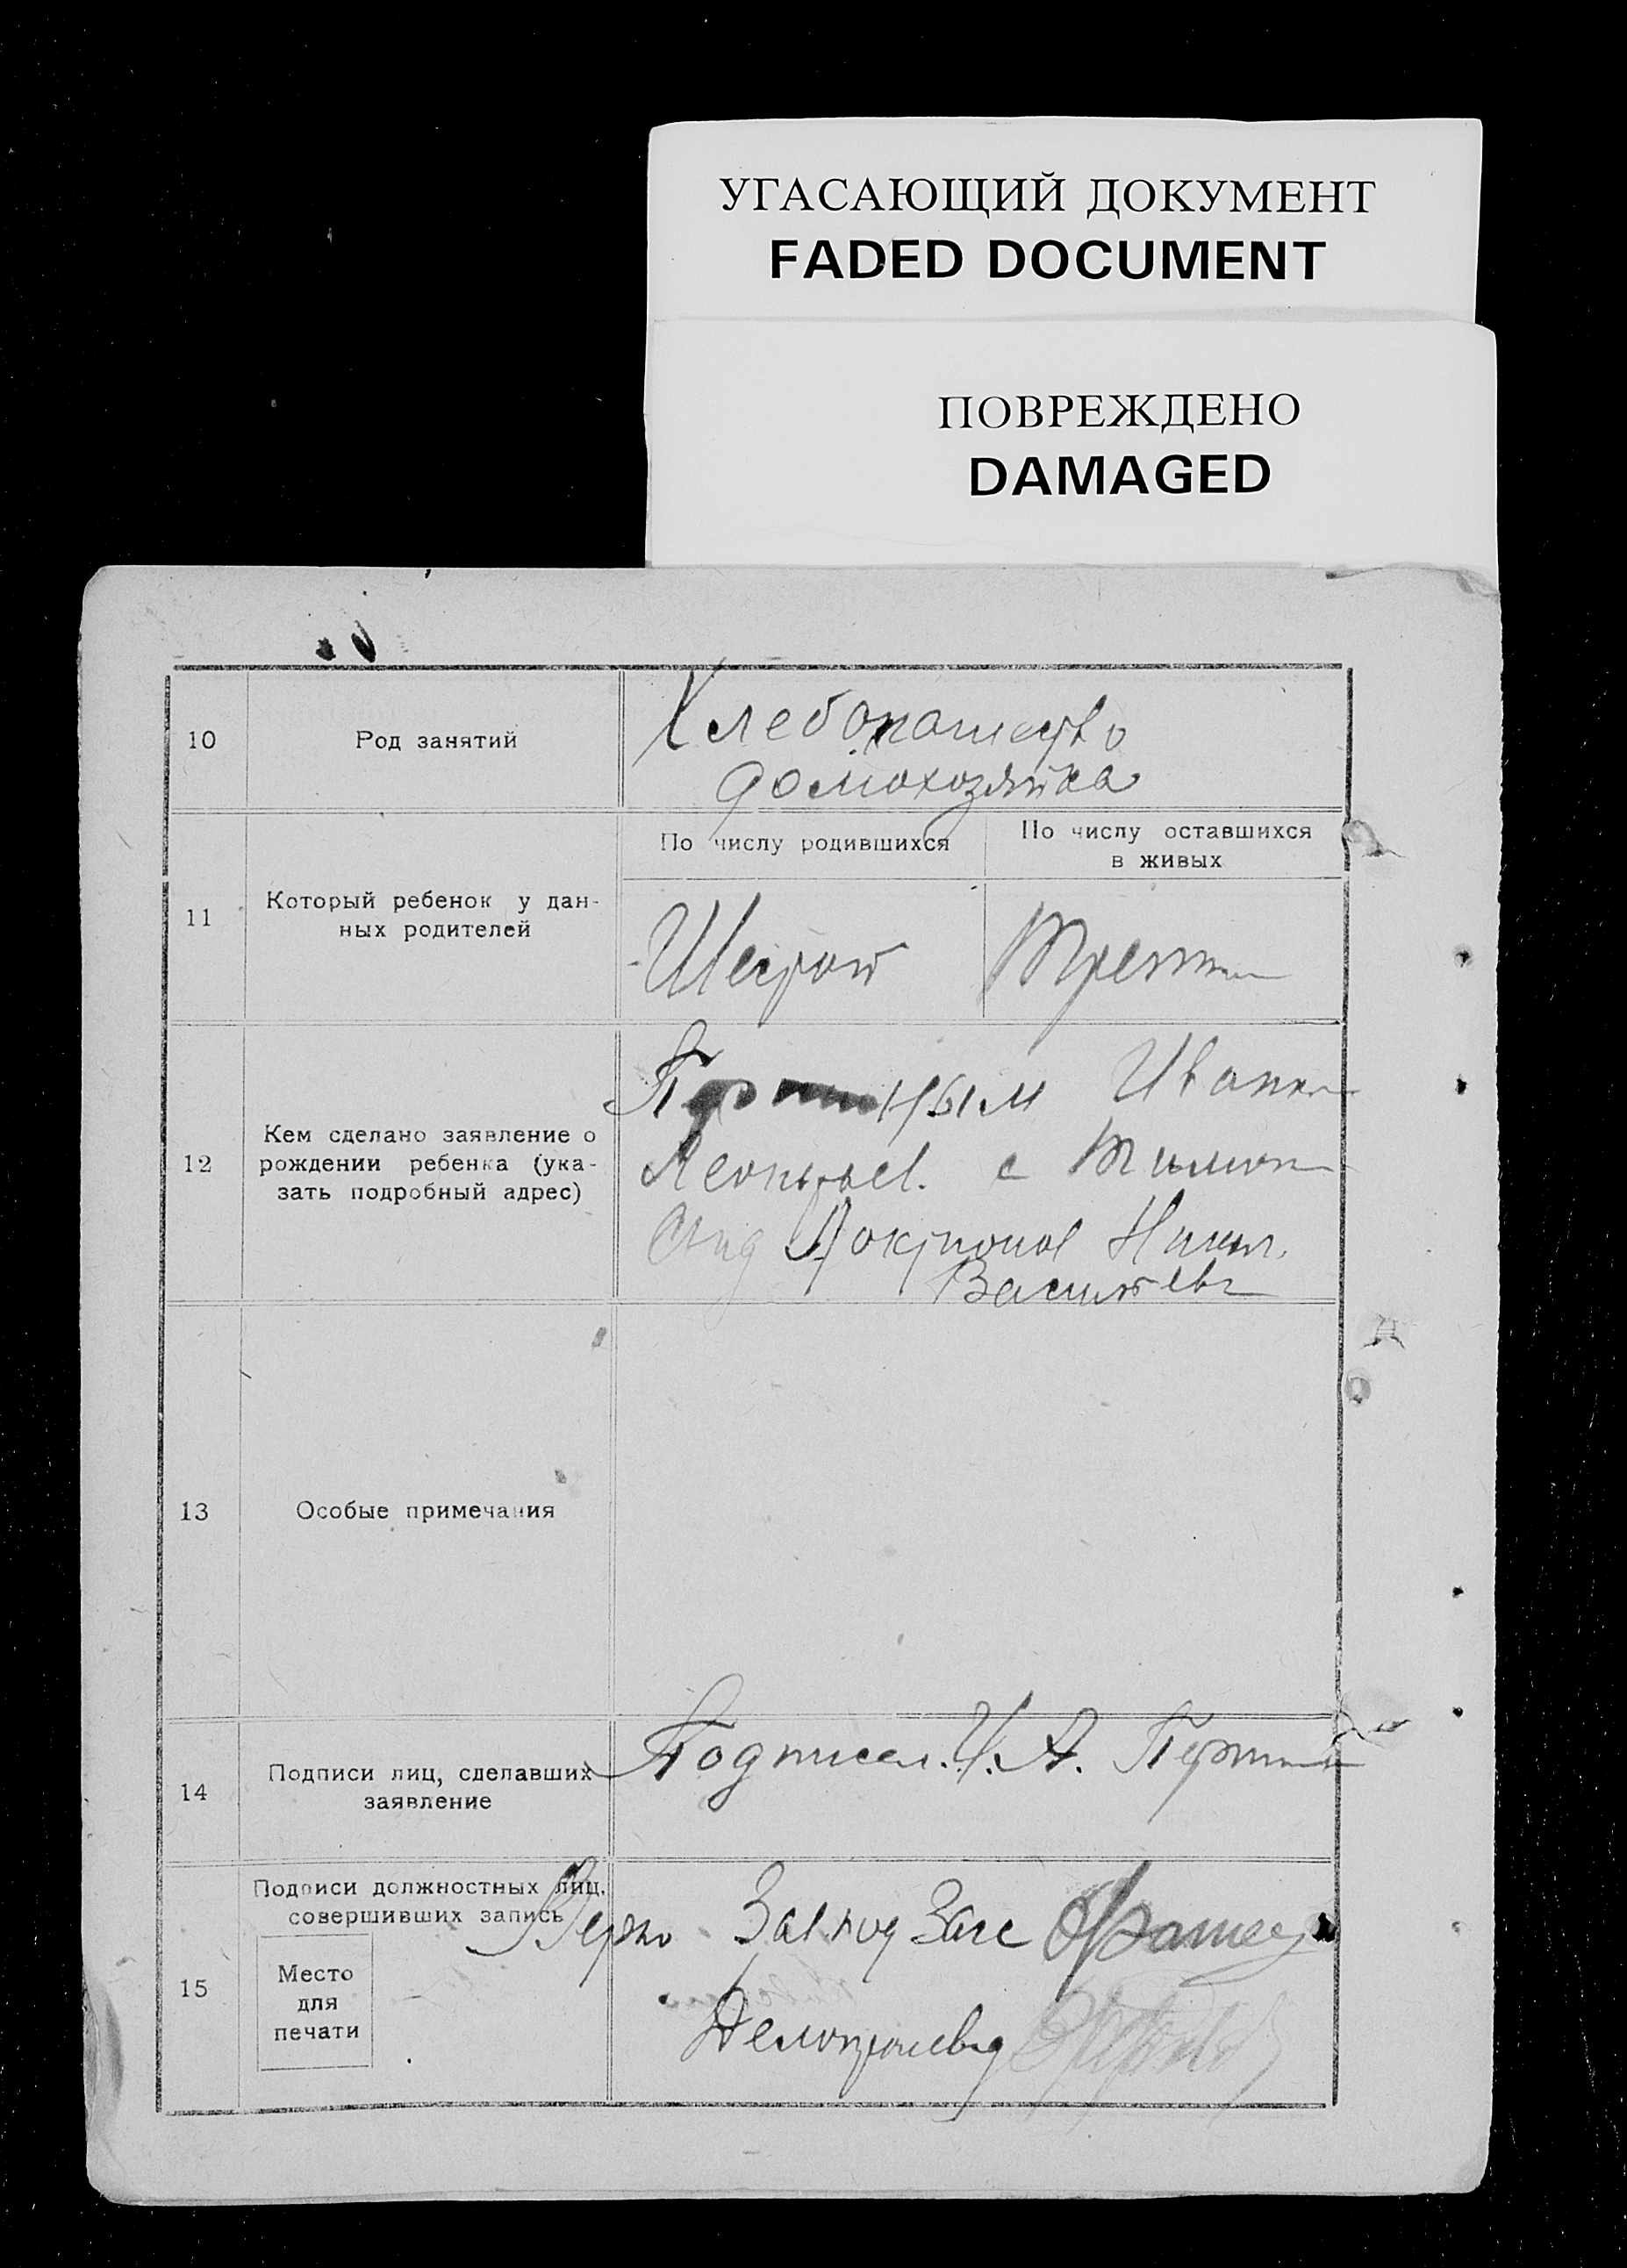 УГАСАЮЩИЙ ДОКУМЕНТ
FADED DOCUMENT
ПОВРЕЖДЕНО
DAMAGED
10
Род занятий
Хлебопашество
домохозяйка
11
Который ребенок у дан-
ных родителей
По числу родившихся
По числу оставшихся
в живых
Шестой
Трет
12
Кем сделано заявление о
рождении ребенка (ука-
зать подробный адрес)
Иваном
с
Васильев
13
Особые примечания
14
Подписи лиц, сделавших
заявление
Подписал
15
Подписи должностных лиц,
совершивших запись
Место
для
печати
Верно
Загс
Делопроизвод